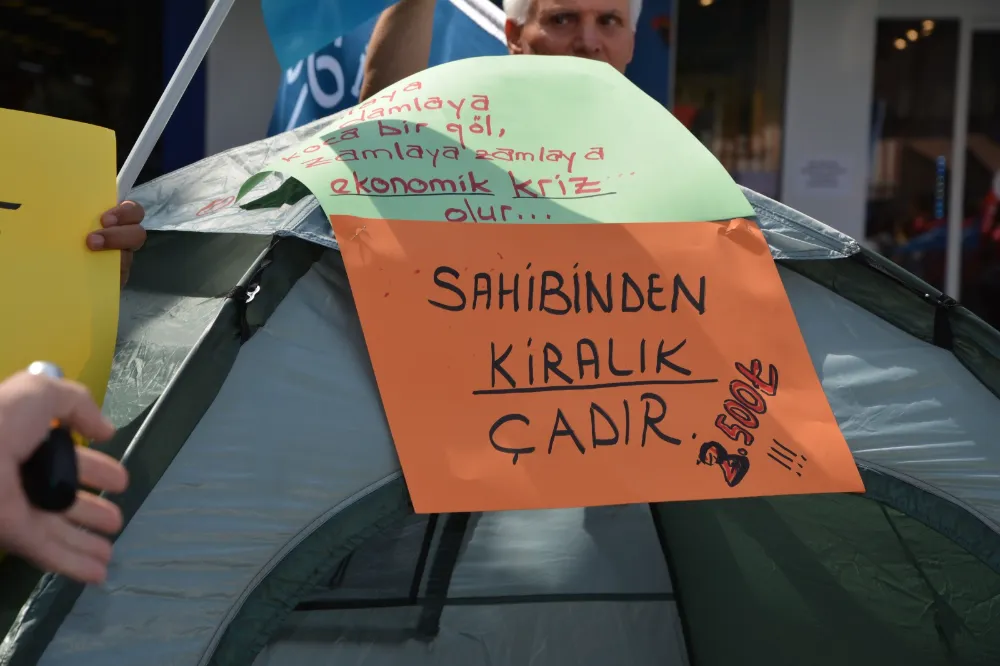 damlaya
koca bir göl,
zamlaya zamlaya
ekonomik kriz...
olur...
SAHİBİNDEN
KİRALIK
ÇADIR.
3.500₺
!!!